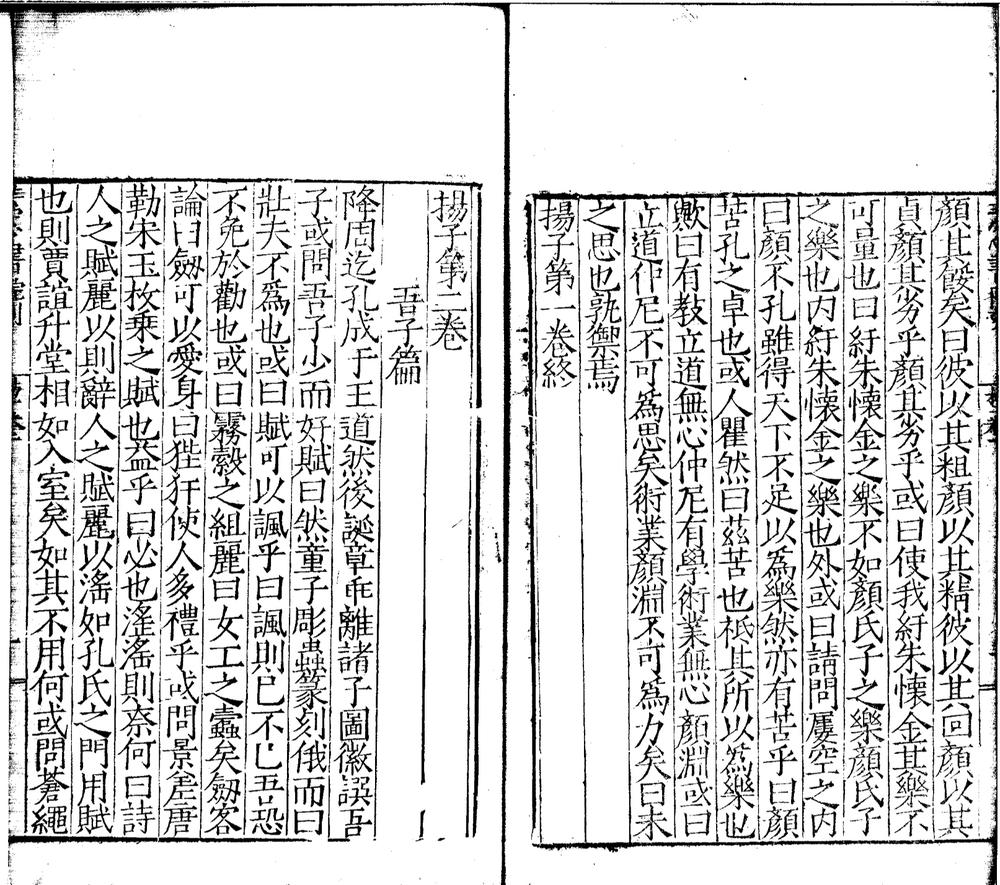 顏其餒矣曰彼以其粗顏以其精彼以其回顏以其
貞顏其劣乎顏其劣乎或曰使我紆朱懷金其樂不
可量也曰紆朱懷金之樂不如顏氏子之樂顏氏子
之樂也内紆朱懷金之樂也外或曰請問屢空之内
曰顏不孔雖得天下不足以爲樂然亦有苦乎曰顏
苦孔之卓也或人瞿然曰茲苦也祇其所以爲樂也
歟曰有教立道無心仲尼有學術業無心顏淵或曰
立道仲尼不可爲思矣術業顏淵不可爲力矣曰未
之思也孰禦焉
揚子第一卷終
揚子第二卷
吾子篇
降周迄孔成于王道然後誕章乖離諸子圖徽譔吾
子或問吾子少而好賦曰然童子彫蟲篆刻俄而曰
壯夫不爲也或曰賦可以諷乎曰諷則已不已吾恐
不免於勸也或曰霧縠之組麗曰女工之蠹矣劔客
論曰劔可以愛身曰狴犴使人多禮乎或問景差唐
勒宋玉枚乗之賦也益乎曰必也滛滛則柰何曰詩
人之賦麗以則辭人之賦麗以滛如孔氏之門用賦
也則賈誼升堂相如入室矣如其不用何或問蒼蠅